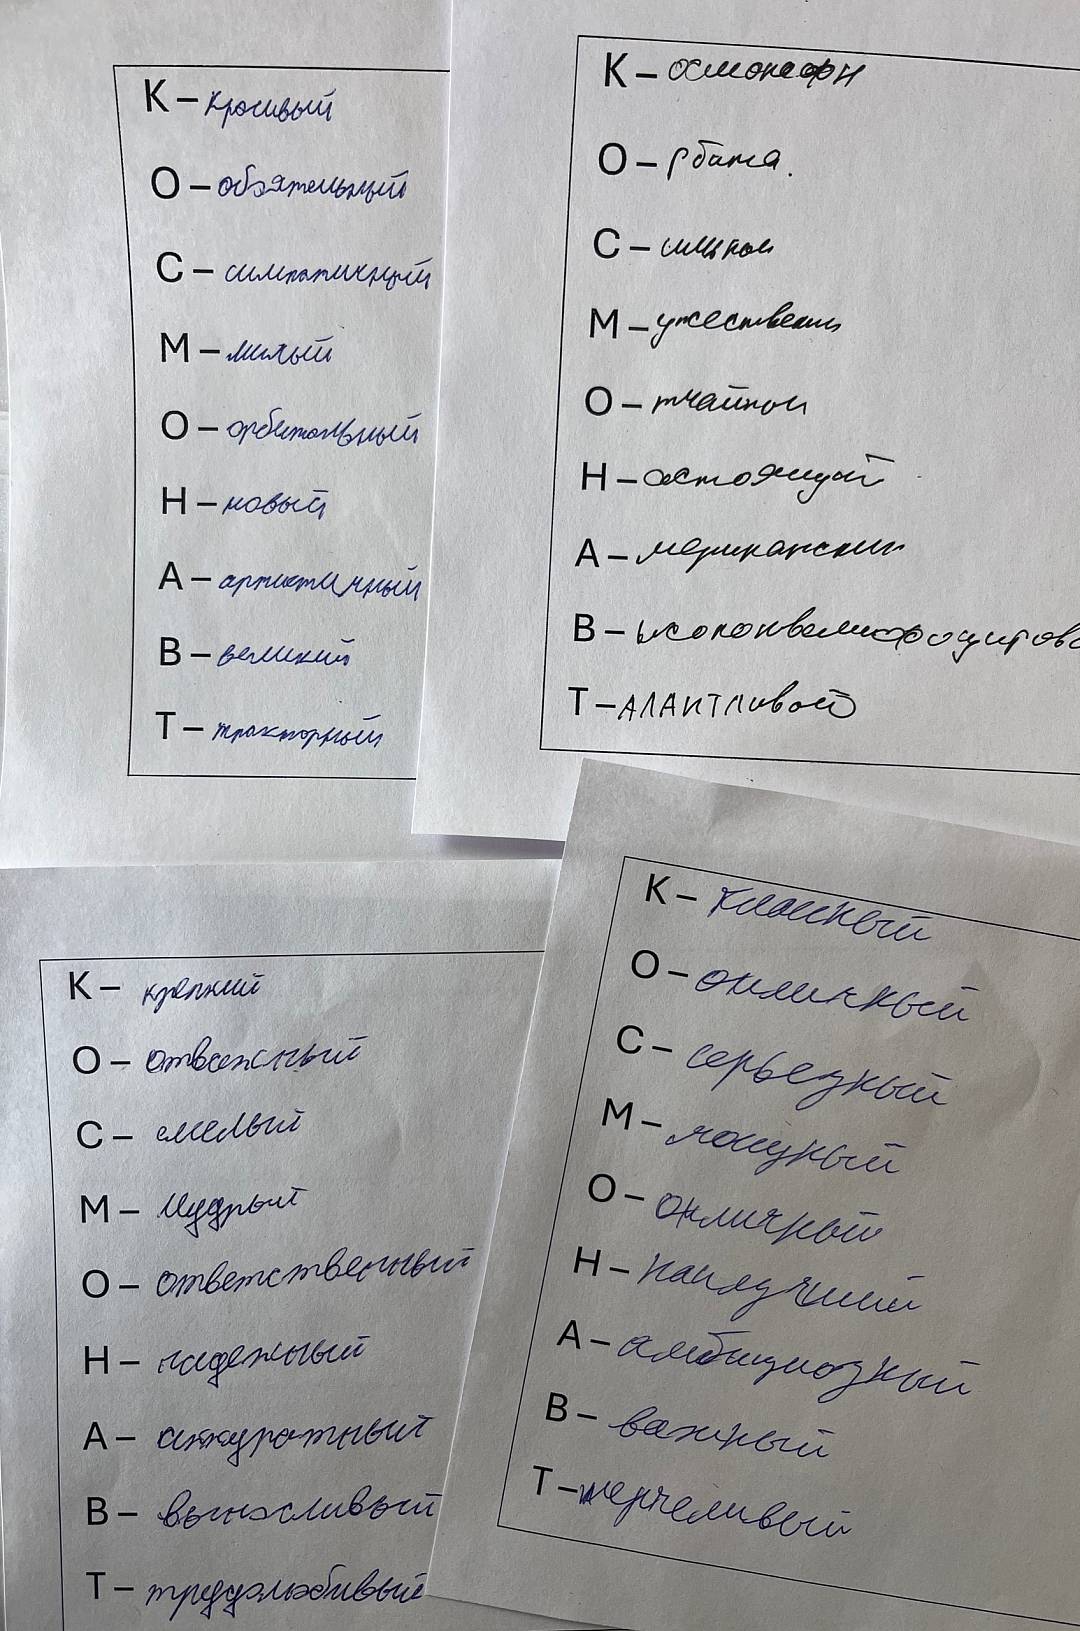 К – Красивый
О – обоятельный
С – симпатичный
М – милый
О – орбитальный
Н – новый
А – артистичный
В – великий
Т – тракторный
К –
О – рбита.
С –
М – ужественный
О – тчайной
Н – астоящий
А – мериканский
В –
Т – АЛАНТливой
К – крепкий
О – отважный
С – смелый
М – Мудрый
О – ответственный
Н – надежный
А – аккуратный
В – выносливый
Т – трудолюбивый
К – классный
О – отличный
С – серьезный
М – мощный
О – отличный
Н – наилучший
А – амбициозный
В – важный
Т – терпеливый